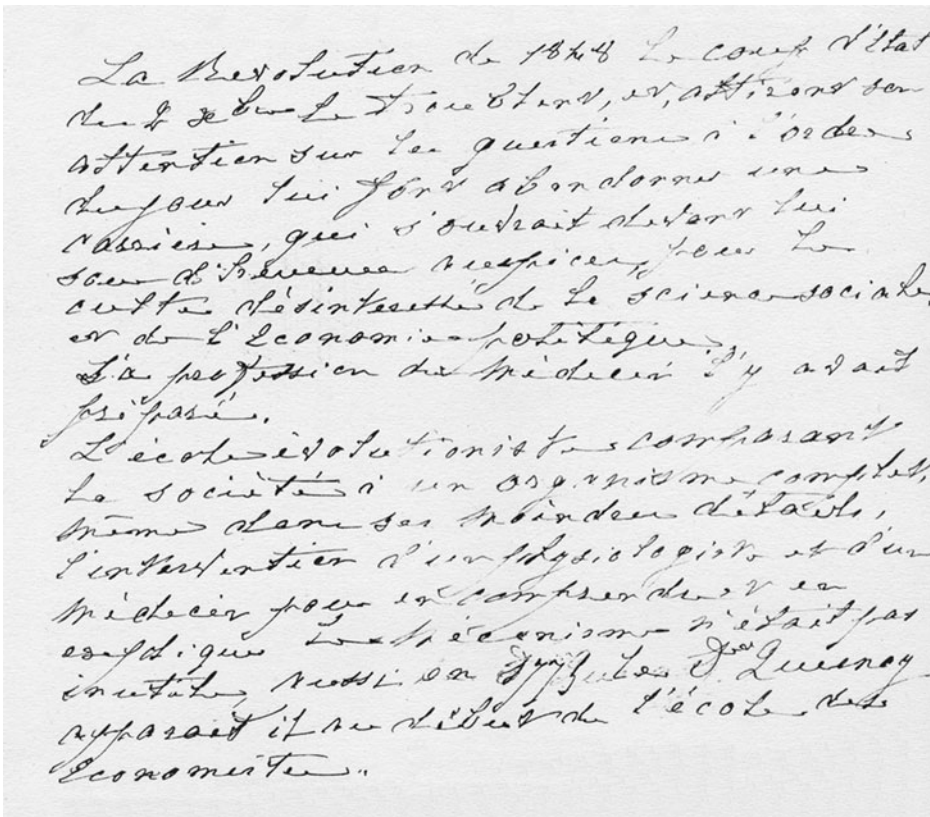 La Revolution de 1848 le coup d'état
du 2 Xbre le troublent, et, attirant son
attention sur les questions à l'ordre
du jour lui font abandonner une
carrière, qui s'ouvrait devant lui
sous d'heureux auspices, pour le
culte désintéressé de la science sociale,
et de l'Economie politique.
Sa profession de Médecin l'y avait
préparé.
L'école évolutioniste comparant
la société à un organisme complet,
même dans ses moindres détails,
l'intervention d'un physiologiste et d'un
Médecin pour en comprendre et en
expliquer le Mécanisme n'était pas
inutile, aussi en le Dr Quesnay
apparait il au début de l'école des
Economistes.